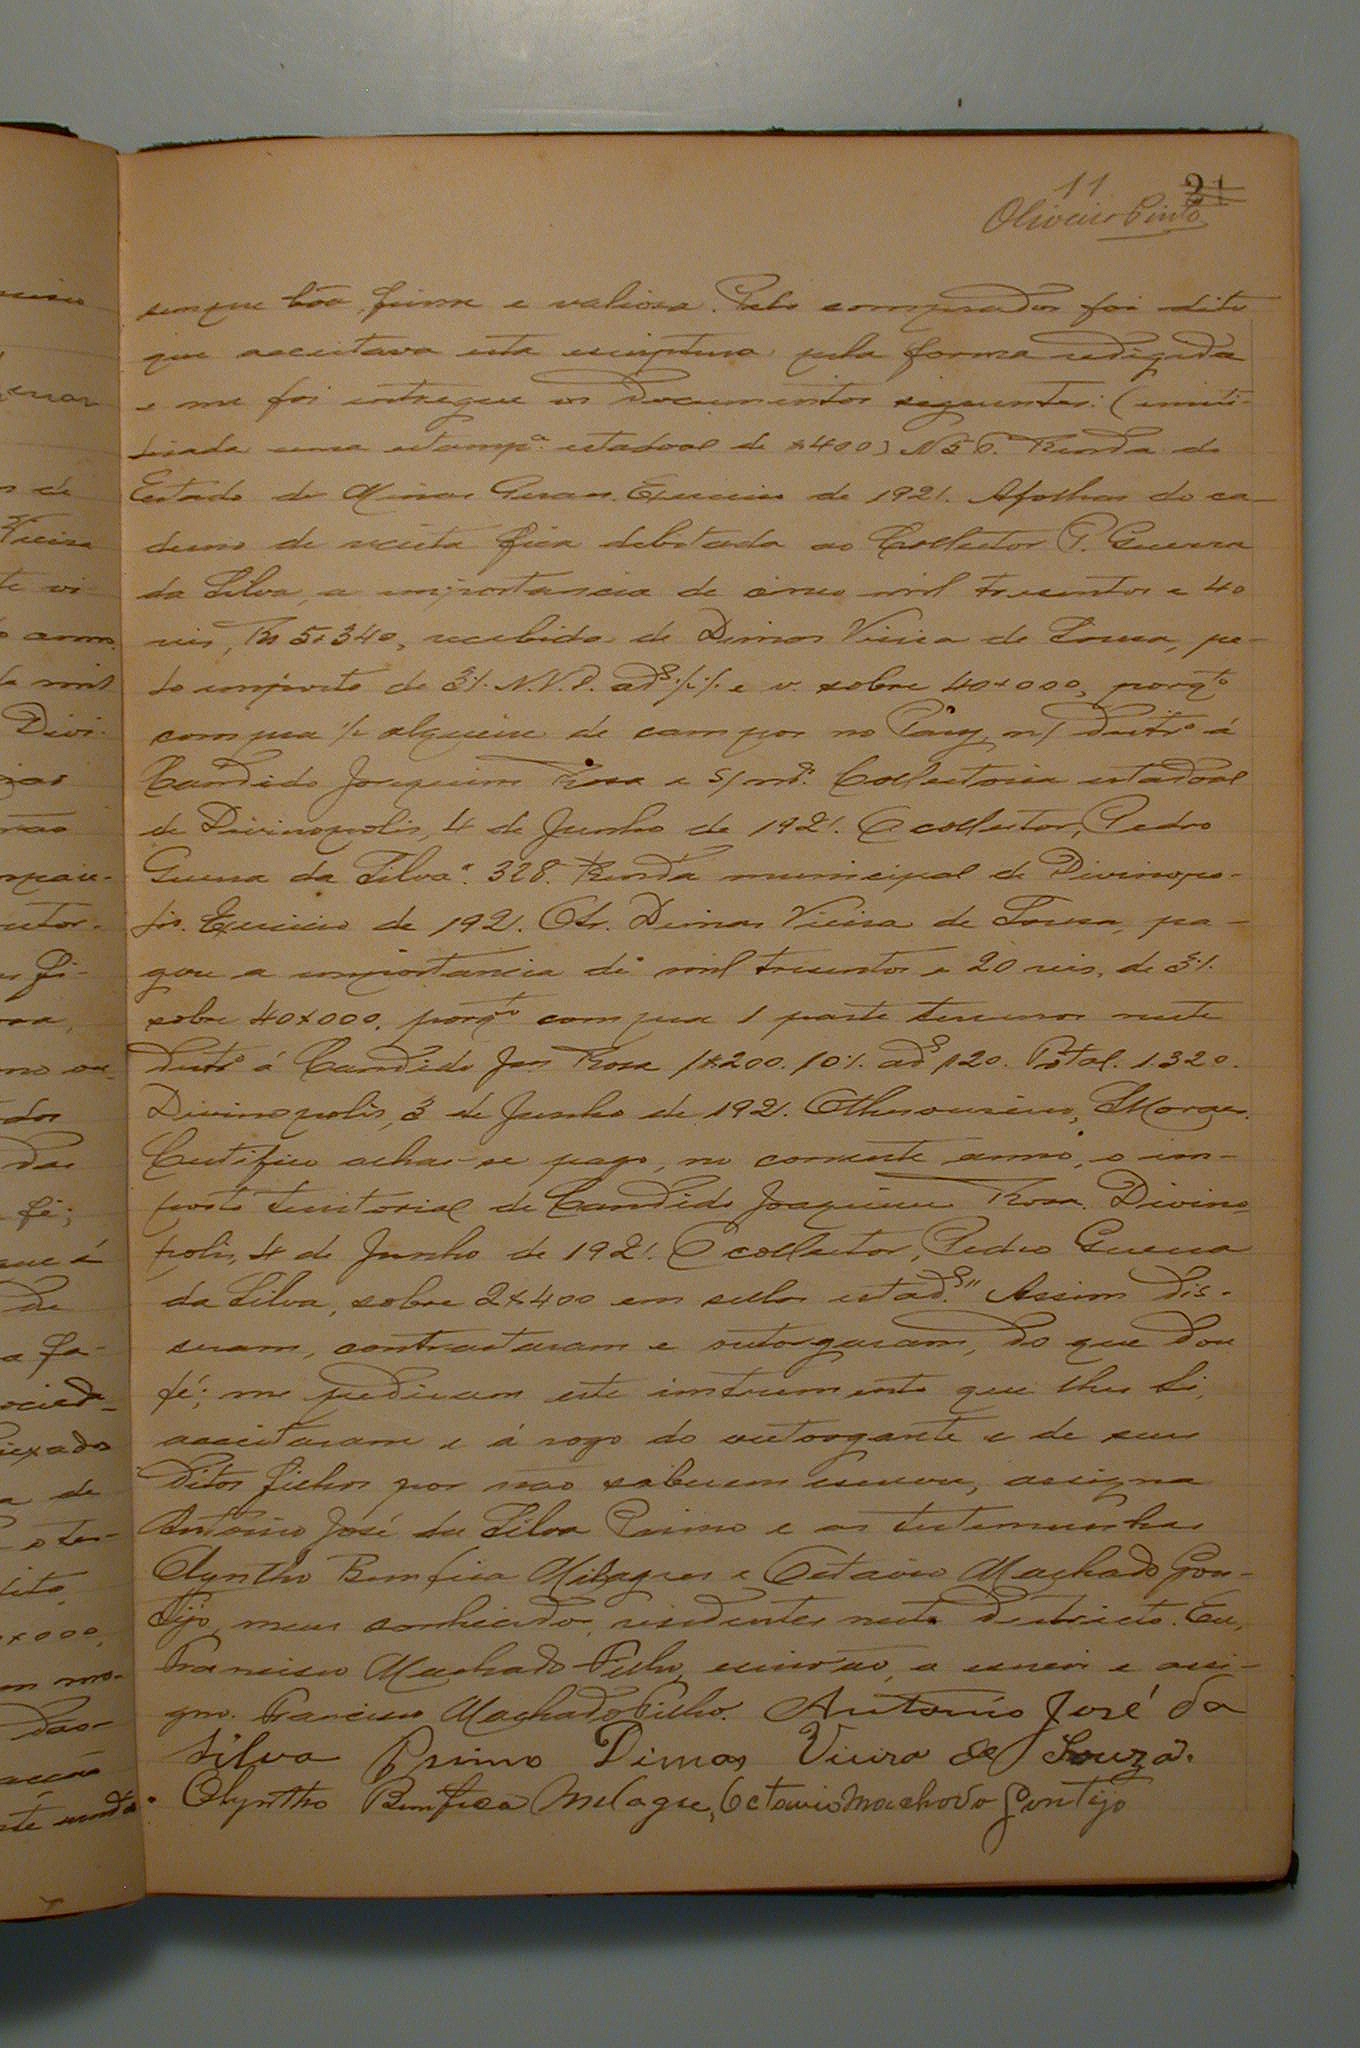 11
21
Oliveira Pinto
sempre bôa, firme e valiosa. Pelo comprador foi dito
que acceitava esta escriptura pela forma redigida
e me foi entregue os documentos seguintes: (inuti-
lisada uma estampª estadoal de $400) Nº 56. Renda do
Estado de Minas Geraes. Exercicio de 1921. Afolhas do ca-
derno de receita fica debitada ao Collector P. Guerra
da Silva, a importancia de cinco mil tresentos e 40
reis, Rs 5$340, recebida de Dimas Vieira de Sousa, pe-
lo imposto de 3%. N.V.D. adˢ e v. sobre 40$000, porqᵗᵒ
compra ½ alqueire de campos no n/ Distrº á
Candido Joaquim Rosa e s/mʳ. Collectoria estadoal
de Divinopolis, 4 de Junho de 1921. O collector, Pedro
Guerra da Silva". 328. Renda municipal de Divinopo-
lis. Exercicio de 1921. O Sr. Dimas Vieira de Sousa, pa-
gou a importancia de mil tresentos e 20 reis, de 3%.
sobre 40$000, porqᵗᵒ compra 1 parte terrenos neste
Distrº á Candido Jm Rosa 1$200. 10%. adˢ 120. Total. 1.320.
Divinopolis, 3 de Junho de 1921. O thesoureiro, Moraes.
Certifico achar-se pago, no corrente anno, o im-
posto territorial de Candido Joaquim Rosa. Divino-
polis, 4 de Junho de 1921. O collector, Pedro Guerra
da Silva, sobre 2$400 em sellos estadˢ." Assim dis-
seram, contractaram e outorgaram, do que dou
fé; me pediram este instrumento que lhes li,
acceitaram e á rogo do outorgante e de seus
ditos filhos por não saberem escrever, assigna
Antonio José da Silva Primo e as testemunhas
Olyntho Bemfica Milagres e Octavio Machado Gon-
tijo, meus conhecidos, residentes neste Districto. Eu,
Francisco Machado Filho, escrivão, a escrevi e assi-
gno. Francisco Machado Filho. Antonio José da
Silva Primo Dimas Vieira de Souza.
Olyntho Bemfica Milagre, Octavio Machado Gontijo